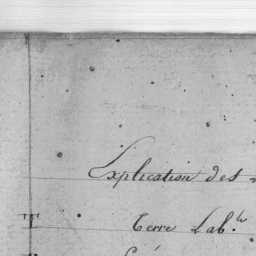 Explication des
Terre Lab.le